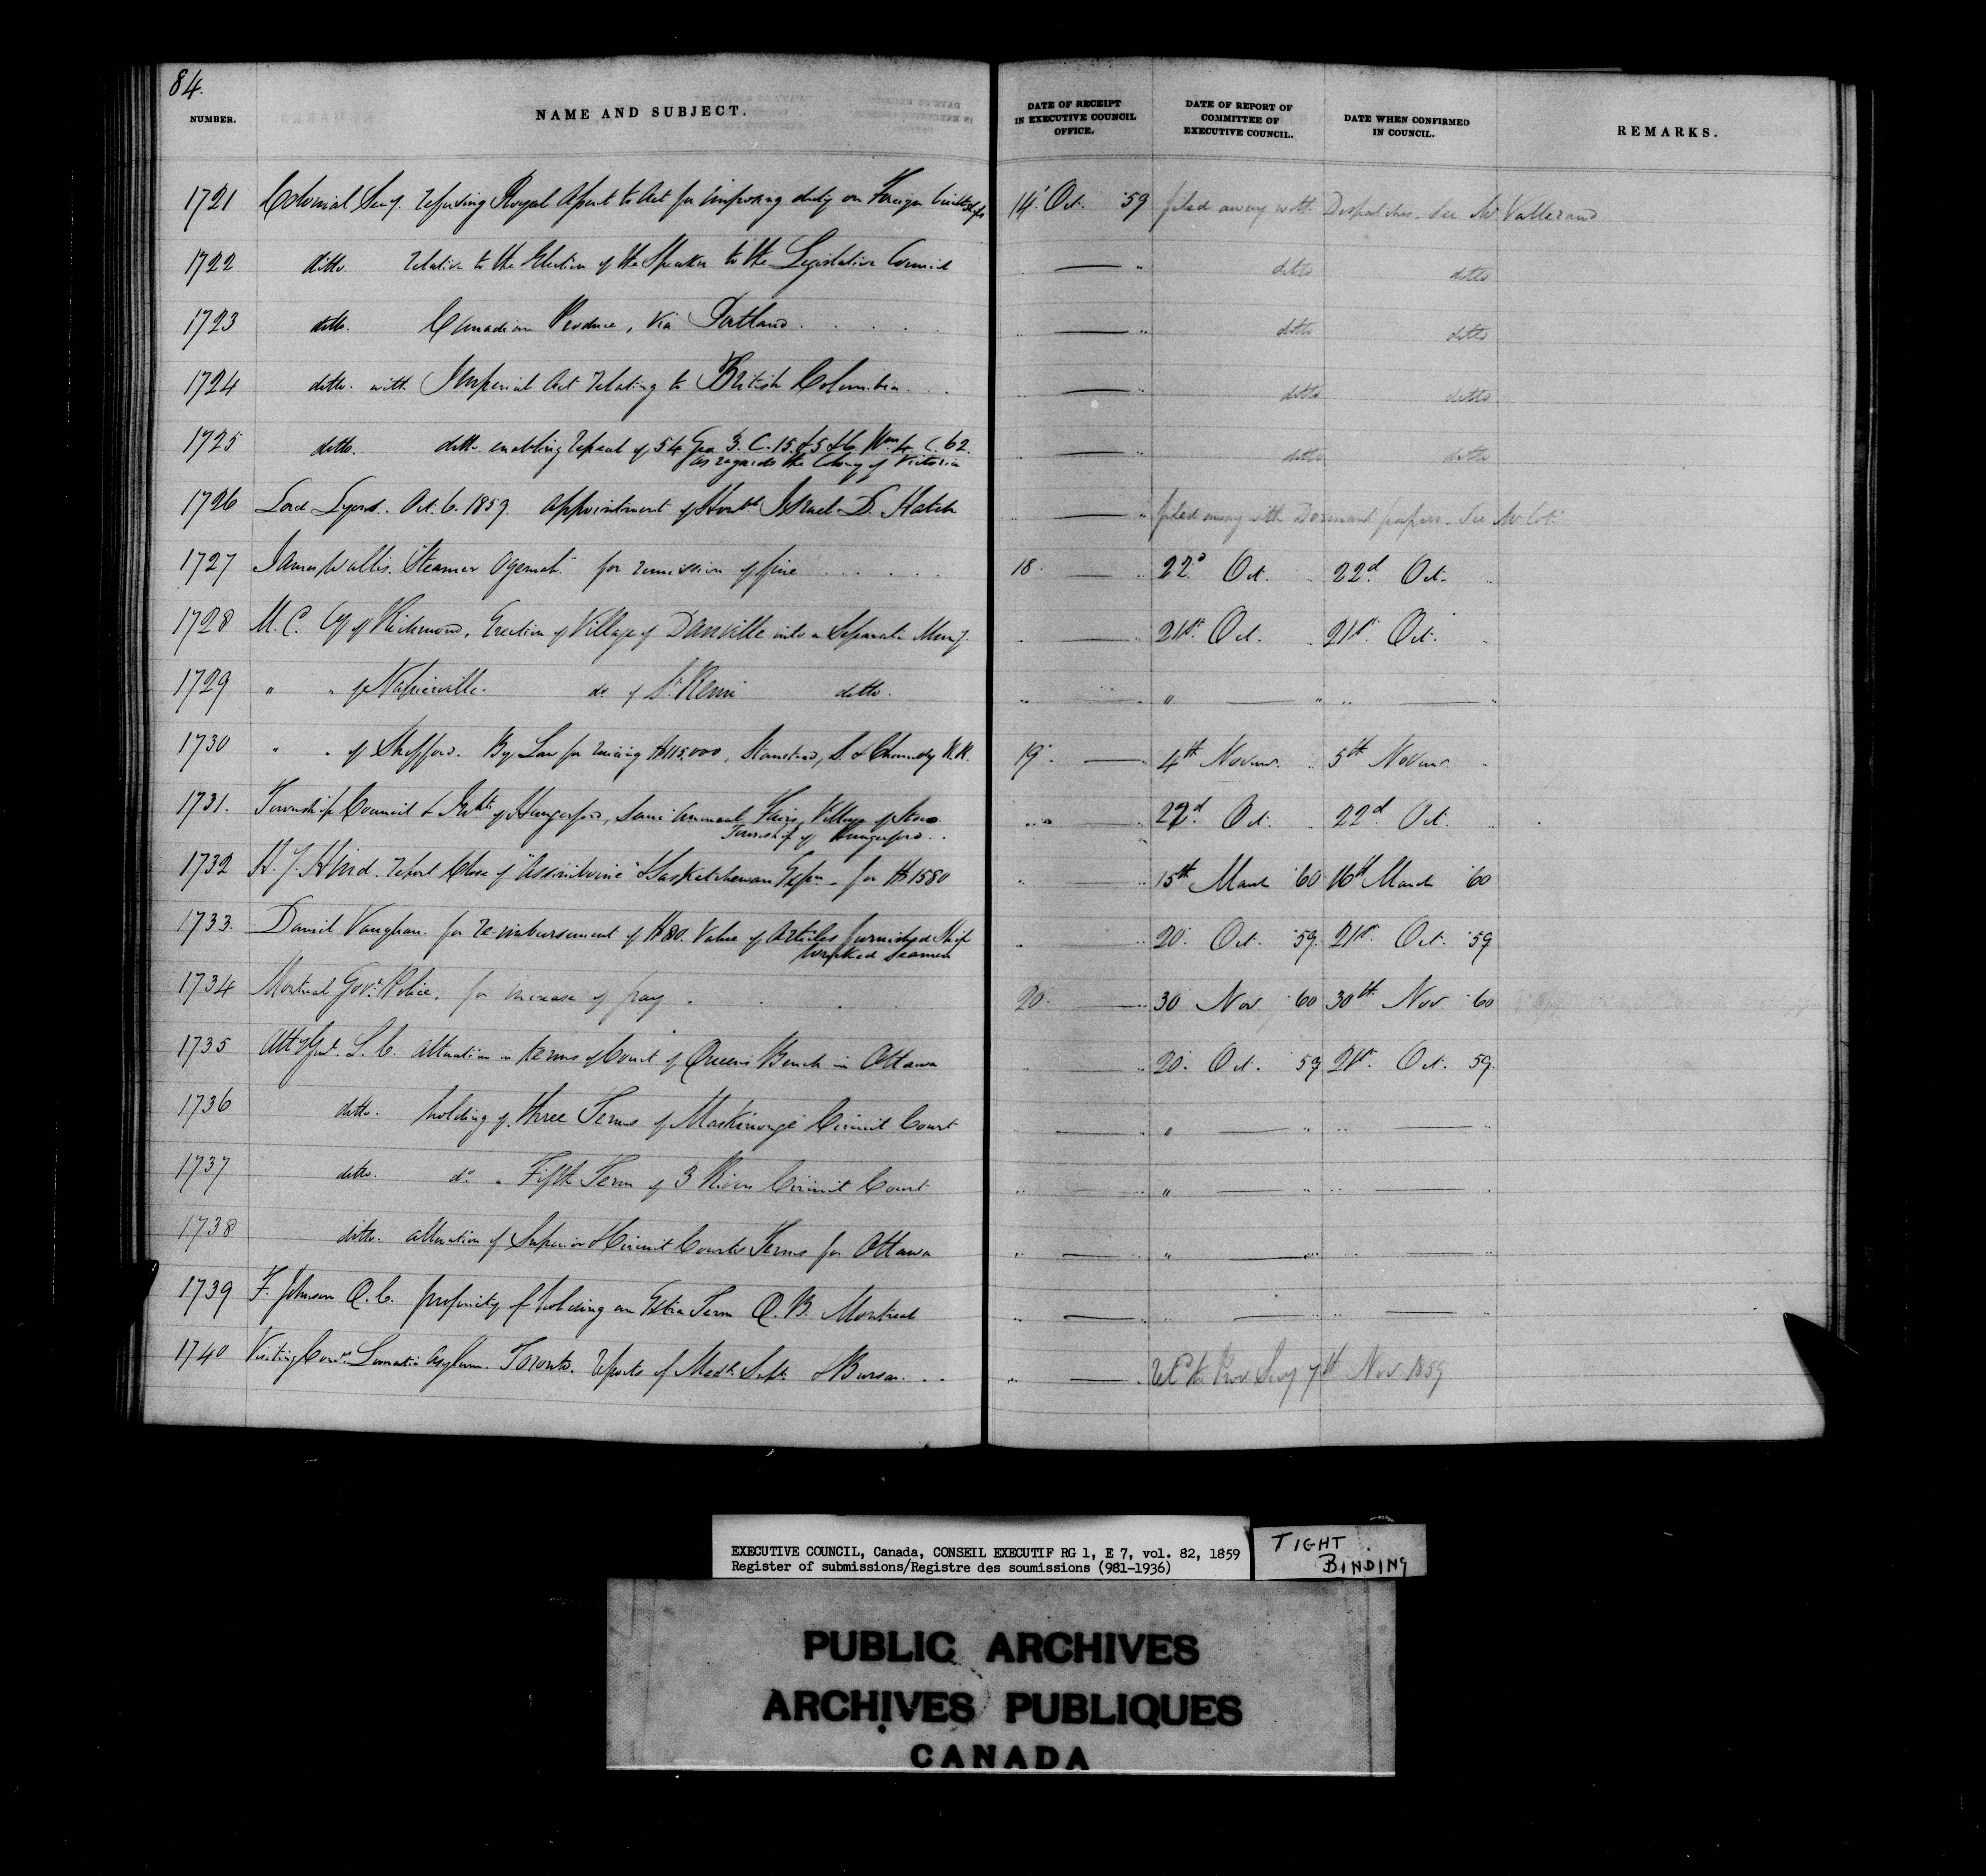 84.
NUMBER. NAME AND SUBJECT. DATE OF RECEIPT IN EXECUTIVE COUNCIL OFFICE. DATE OF REPORT OF COMMITTEE OF EXECUTIVE COUNCIL. DATE WHEN CONFIRMED IN COUNCIL. REMARKS.
1721 Colonial Secy. refusing Royal Assent to Act for imposing duty on Foreign built Ships 14. Oct. '59 filed away with Despatches. See Mr Vallerand
1722 ditto. relative to the Election of the Speaker to the Legislative Council " — " ditto ditto
1723 ditto. Canadian Produce, via Portland " — " ditto ditto
1724 ditto. with Imperial Act relating to British Columbia " — " ditto ditto
1725 ditto. ditto. enabling repeal of 54 Geo. 3. C. 15. & 5 & 6 Wm 4. C. 62.
as regards the Colony of Victoria " — " ditto ditto
1726 Lord Lyons. Oct. 6. 1859. appointment of Honble Israel D. Hatch " — " filed away with Dormant papers. See Mr Coté
1727 James Wallis. "Steamer Ogemah" for remission of fine 18. — " 22d Oct. " 22d Oct. "
1728 M. C. Cy of Richmond, Erection of Village of Danville into a Separate Muny. " — " 21st Oct. " 21st Oct. "
1729 " " of Napierville. do of St Remi ditto. " — " " — " " — "
1730 " " of Shefford. By Law for raising $115,000, Stanstead, S. & Chambly R.R. 19. — " 4th Novemr. " 5th Novemr. "
1731. Township Council & Inhts of Hungerford, Semi Annual Fairs, Village of Stoco
Township of Hungerford. " — " 22d Oct. " 22d Oct. "
1732 H. Y. Hind. report Close of "Assiniboine" & Saskatchewan Expn. for $1580 " — " 15th March '60 16th March '60
1733. Daniel Vaughan. for re-imbursement of $80. Value of Articles furnished Ship
wrecked Seamen " — " 20. Oct. '59. 21st Oct. '59
1734 Montreal Govt Police. for increase of pay 20. — " 30 Nov. '60 30th Nov '60
1735 Atty Genl. L. C. alteration in terms of Court of Queens Bench in Ottawa " — " 20. Oct. 59 21st. Oct. 59.
1736 ditto. holding of three Terms of Maskinongé Circuit Court " — " " — " " — "
1737 ditto. do. " Fifth Term of 3 Rivers Circuit Court " — " " — " " — "
1738 ditto. alteration of Superior & Circuit Courts Terms for Ottawa " — " " — " " — "
1739 F. Johnson Q. C. propriety of holding an Extra Term Q. B. Montreal " — " " — " " — "
1740 Visiting Comrs. Lunatic Asylum. Toronto. reports of Medl. Supt. & Bursar. " — " Refd to Prov. Secy 7th Nov. 1859
EXECUTIVE COUNCIL, Canada, CONSEIL EXECUTIF RG 1, E 7, vol. 82, 1859
Register of submissions/Registre des soumissions (981-1936)
TIGHT BINDING
PUBLIC ARCHIVES
ARCHIVES PUBLIQUES
CANADA